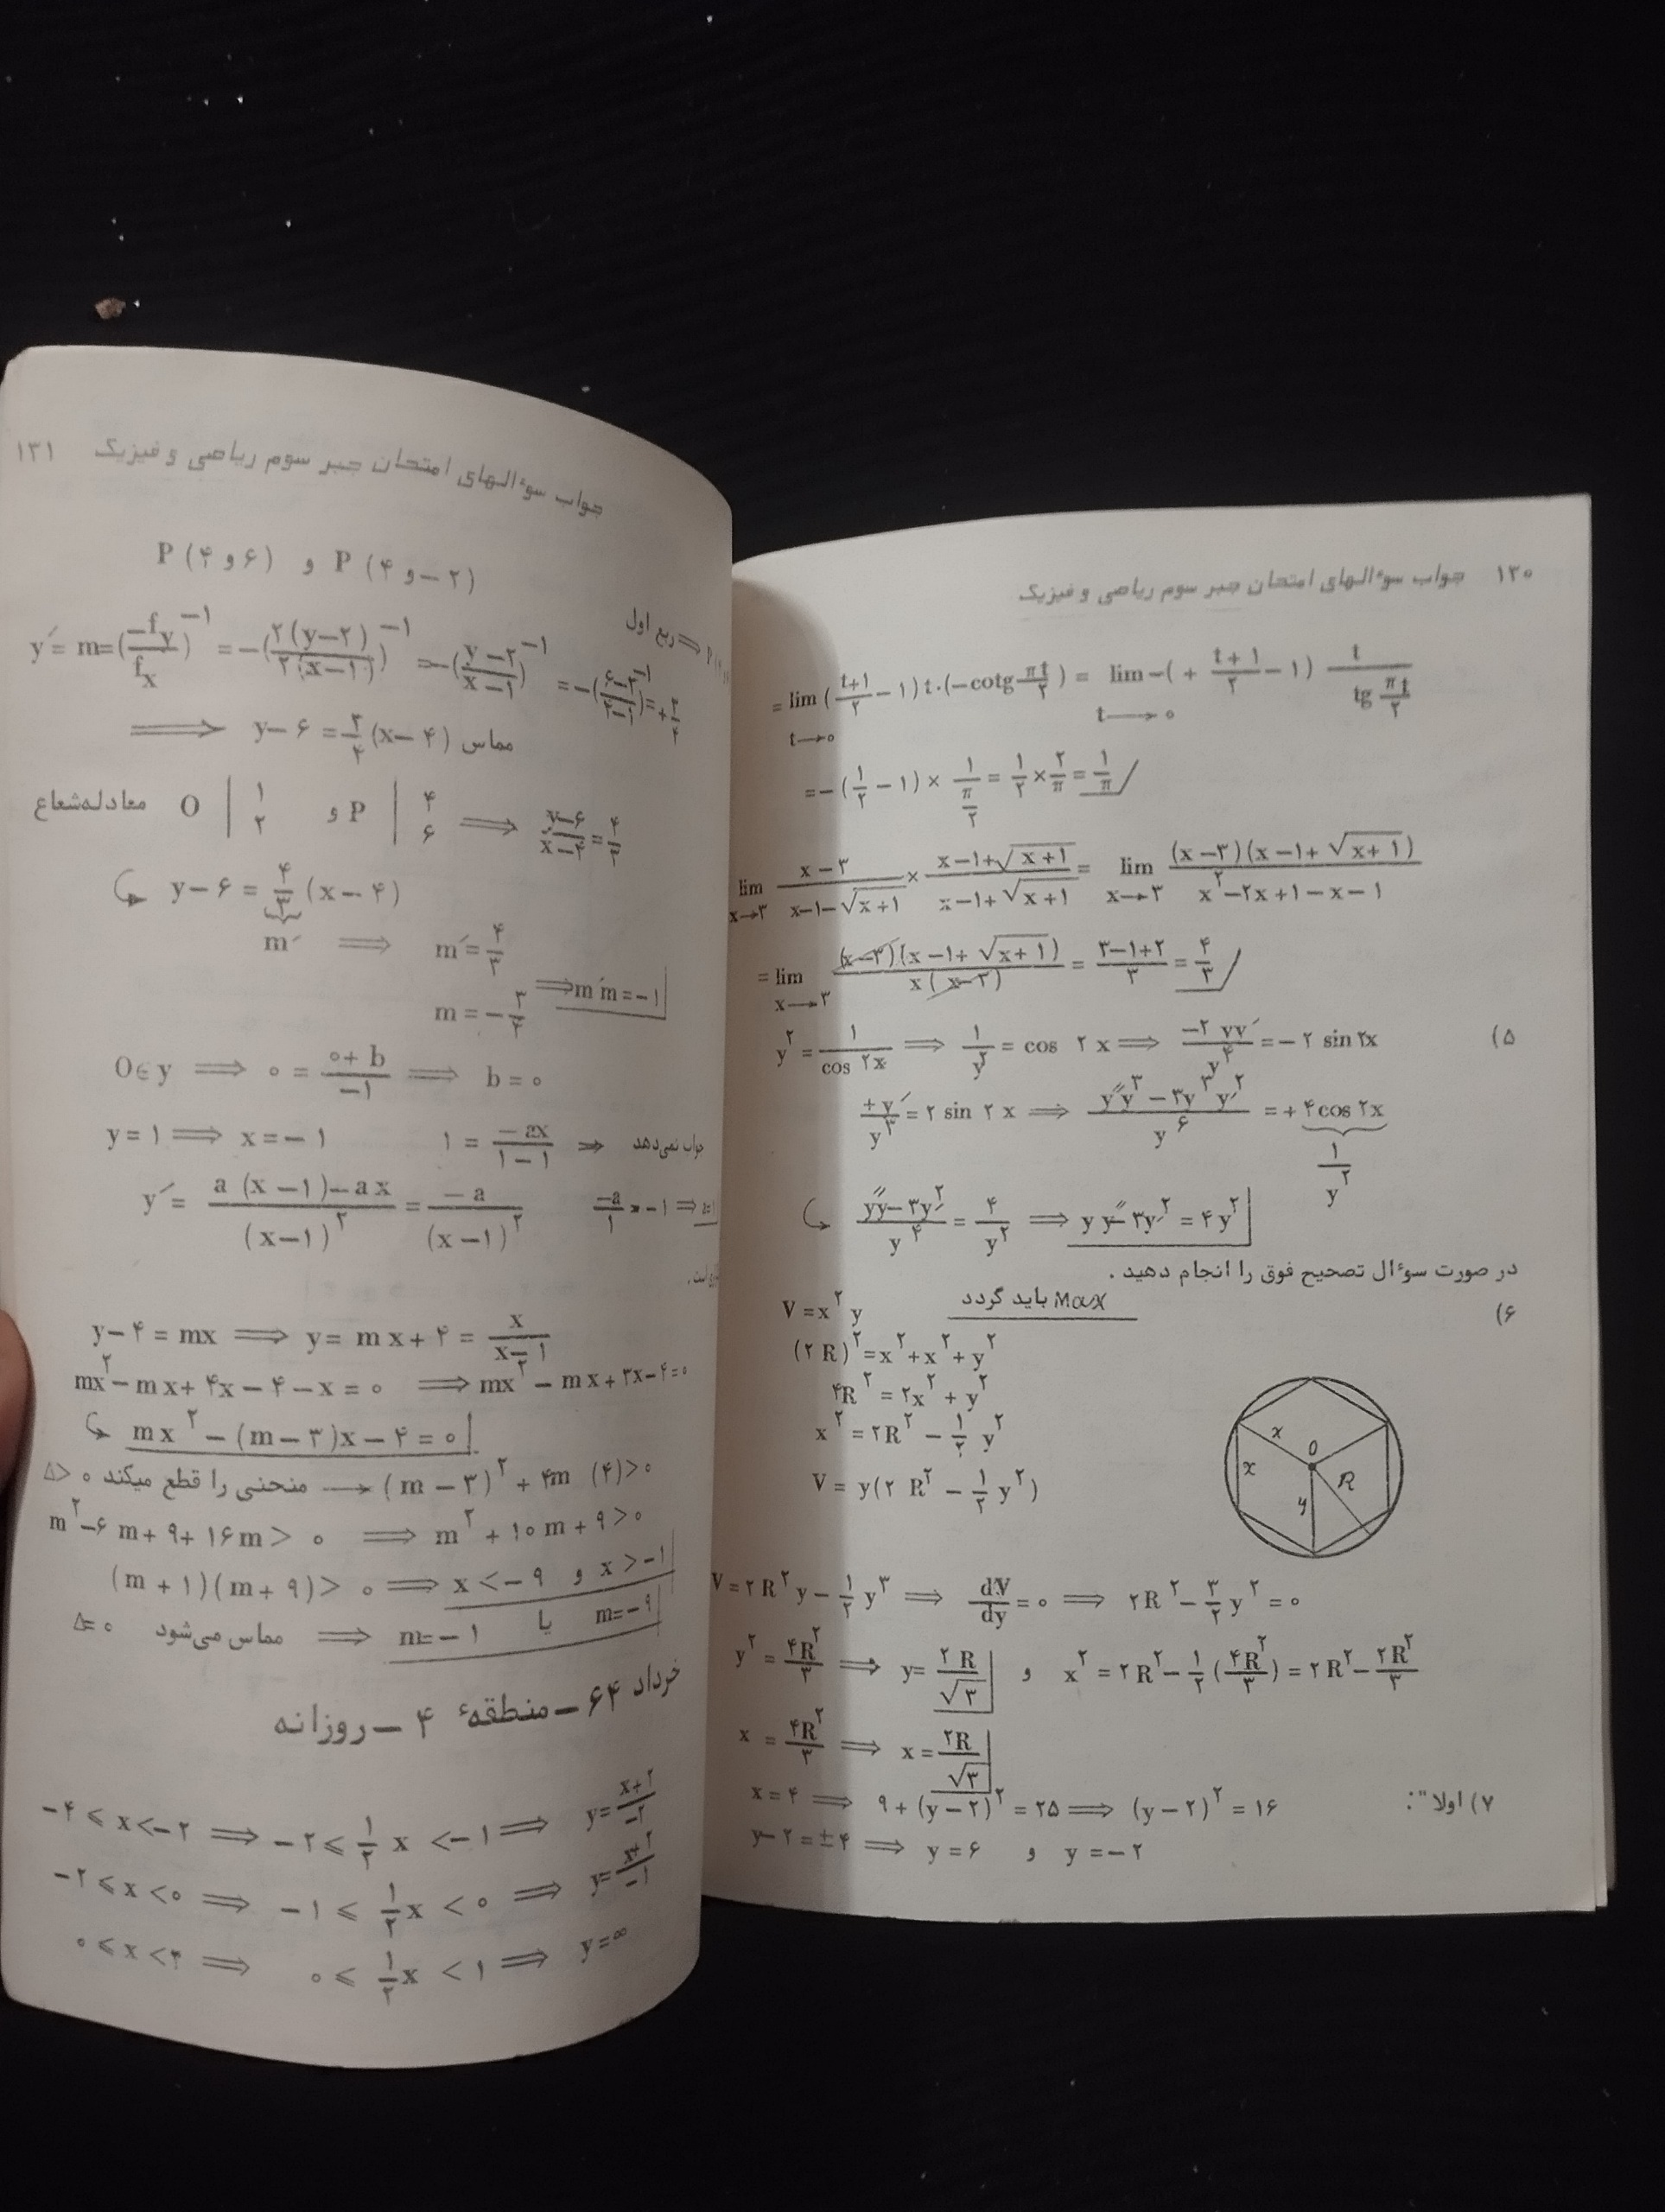 ۱۳۰ جواب سوءالهای امتحان جبر سوم ریاضی و فیزیک
= lim (t+۱/۲ − ۱) t.(−cotg πt/۲) = lim −(+ t+۱/۲ − ۱) t/tg πt/۲
t→۰ t→۰
= −(۱/۲ − ۱) × ۱/(π/۲) = ۱/۲ × ۲/π = ۱/π
lim x−۳/x−۱−√x+۱ × x−۱+√x+۱/x−۱+√x+۱ = lim (x−۳)(x−۱+√x+۱)/x²−۲x+۱−x−۱
x→۳ x→۳
= lim (x−۳)(x−۱+√x+۱)/x(x−۳) = ۳−۱+۲/۳ = ۴/۳
x→۳
۵) y² = ۱/cos ۲x ⟹ ۱/y² = cos ۲x ⟹ −۲yy′/y⁴ = −۲ sin ۲x
+y′/y³ = ۲ sin ۲x ⟹ y″y³ − ۳y²y′²/y⁶ = +۴cos ۲x
۱/y²
yy″−۳y′²/y⁴ = ۴/y² ⟹ yy″−۳y′² = ۴y²
در صورت سوءال تصحیح فوق را انجام دهید .
۶) V = x²y Max باید گردد
(۲R)² = x²+x²+y²
۴R² = ۲x² + y²
x² = ۲R² − ۱/۲ y²
V = y(۲R² − ۱/۲ y²)
x O x R y
V = ۲R²y − ۱/۲ y³ ⟹ dV/dy = ۰ ⟹ ۲R² − ۳/۲ y² = ۰
y² = ۴R²/۳ ⟹ y = ۲R/√۳ و x² = ۲R² − ۱/۲(۴R²/۳) = ۲R² − ۲R²/۳
x = ۴R²/۳ ⟹ x = ۲R/√۳
۷) اولا": x = ۴ ⟹ ۹+(y−۲)² = ۲۵ ⟹ (y−۲)² = ۱۶
y−۲ = ±۴ ⟹ y = ۶ و y = −۲
جواب سوءالهای امتحان جبر سوم ریاضی و فیزیک ۱۳۱
P(۴ و ۶) و P(۴ و −۲)
ربع اول
y′ = m = (−f_y/f_x)⁻¹ = −(۲(y−۲)/۲(x−۱))⁻¹ = −(y−۲/x−۱)⁻¹
⟹ y−۶ = ۳/۴(x−۴) مماس
معادله شعاع O | ۱ ۲ و P | ۴ ۶ ⟹ y−۶/x−۴ = ۴/۳
y−۶ = ۴/۳ (x−۴)
m′ ⟹ m′ = ۴/۳
m = −۳/۴ ⟹ m′m = −۱
O∈y ⟹ ۰ = ۰+b/−۱ ⟹ b = ۰
y = ۱ ⟹ x = −۱ ۱ = −ax/۱−۱ ⟹ جواب نمی‌دهد
y′ = a(x−۱)−ax/(x−۱)² = −a/(x−۱)² −a/۱ = −۱ ⟹
y−۴ = mx ⟹ y = mx+۴ = x/x−۱
mx²−mx+۴x−۴−x = ۰ ⟹ mx²−mx+۳x−۴=۰
mx² −(m−۳)x−۴ = ۰
Δ>۰ منحنی را قطع میکند → (m−۳)² + ۴m (۴)>۰
m²−۶m+۹+۱۶m > ۰ ⟹ m²+۱۰m+۹>۰
(m+۱)(m+۹) > ۰ ⟹ x<−۹ و x>−۱
Δ=۰ مماس می‌شود ⟹ m=−۱ یا m=−۹
خرداد ۶۴ − منطقهٔ ۴ − روزانه
−۴ ⩽ x<−۲ ⟹ −۲⩽ ۱/۲ x <−۱ ⟹ y = x+۲/−۲
−۲⩽x<۰ ⟹ −۱⩽ ۱/۲ x <۰ ⟹ y = x+۲/−۱
۰⩽x<۲ ⟹ ۰⩽ ۱/۲ x <۱ ⟹ y=∞